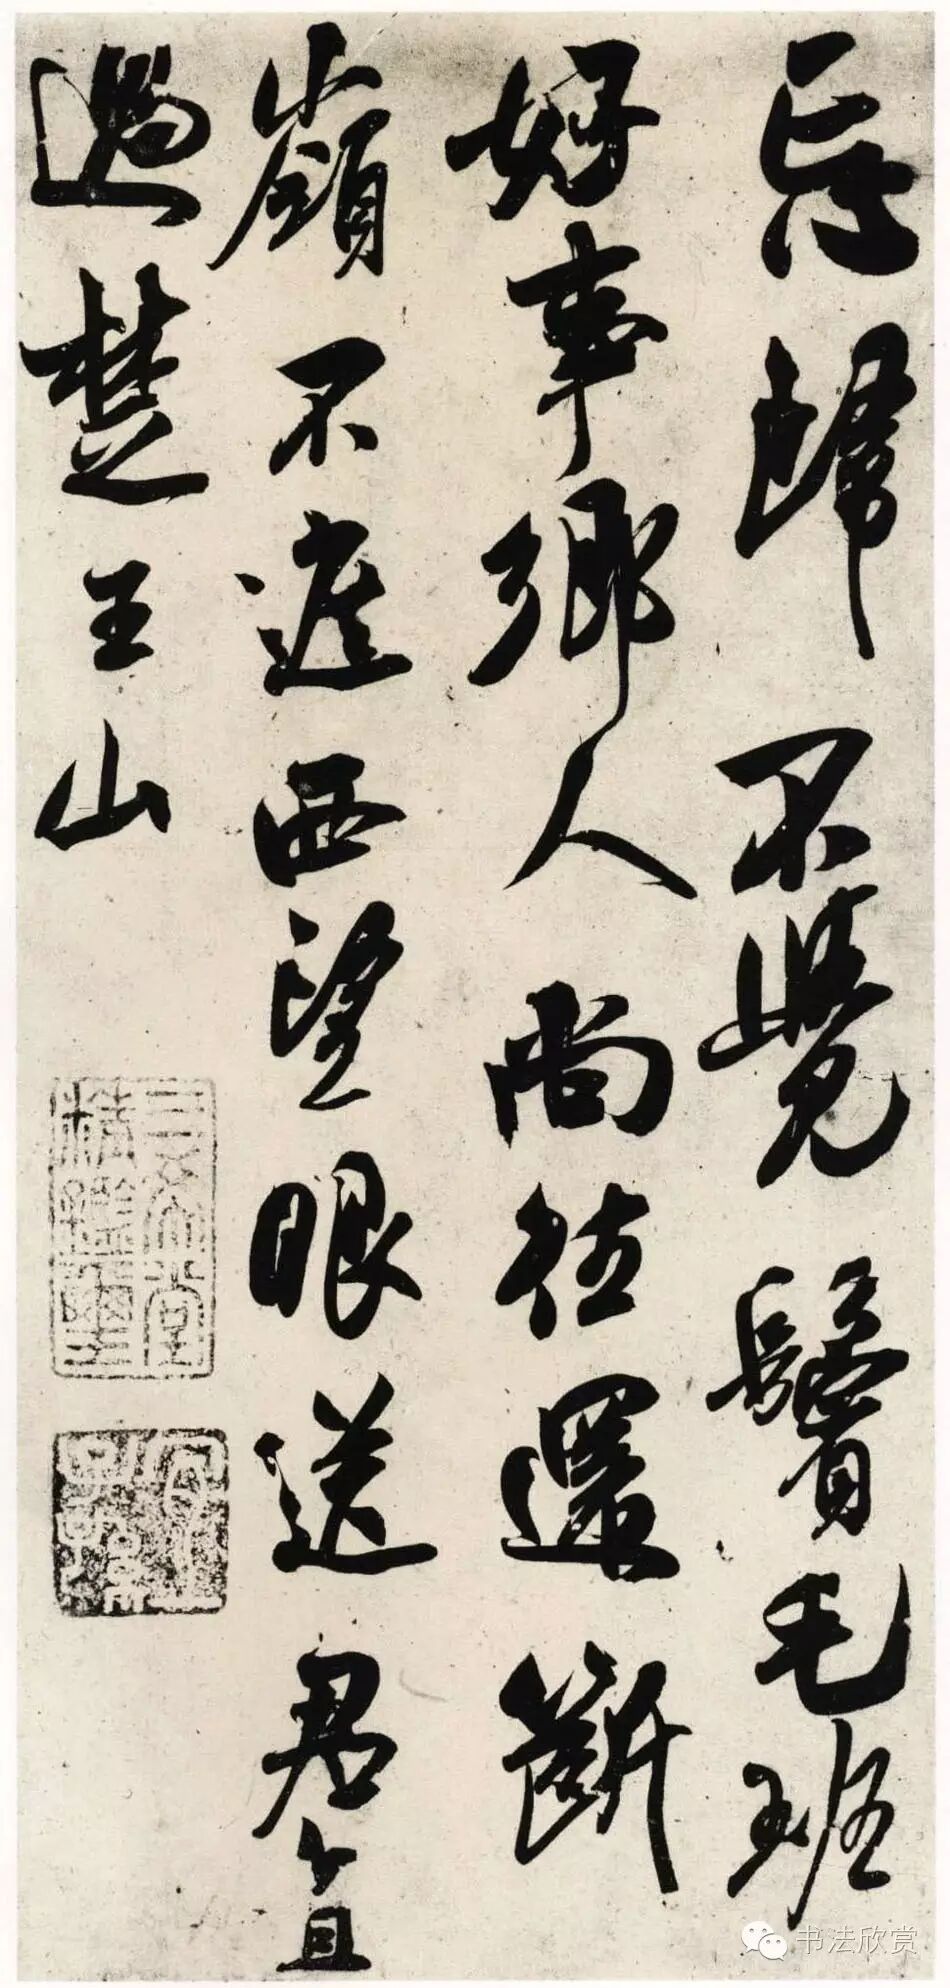 忘歸不覺鬢毛班
好事鄉人尚往還斷
嶺不遮西望眼送君直
過楚王山
三希堂
精鑑璽
宜
子孫
书法欣赏